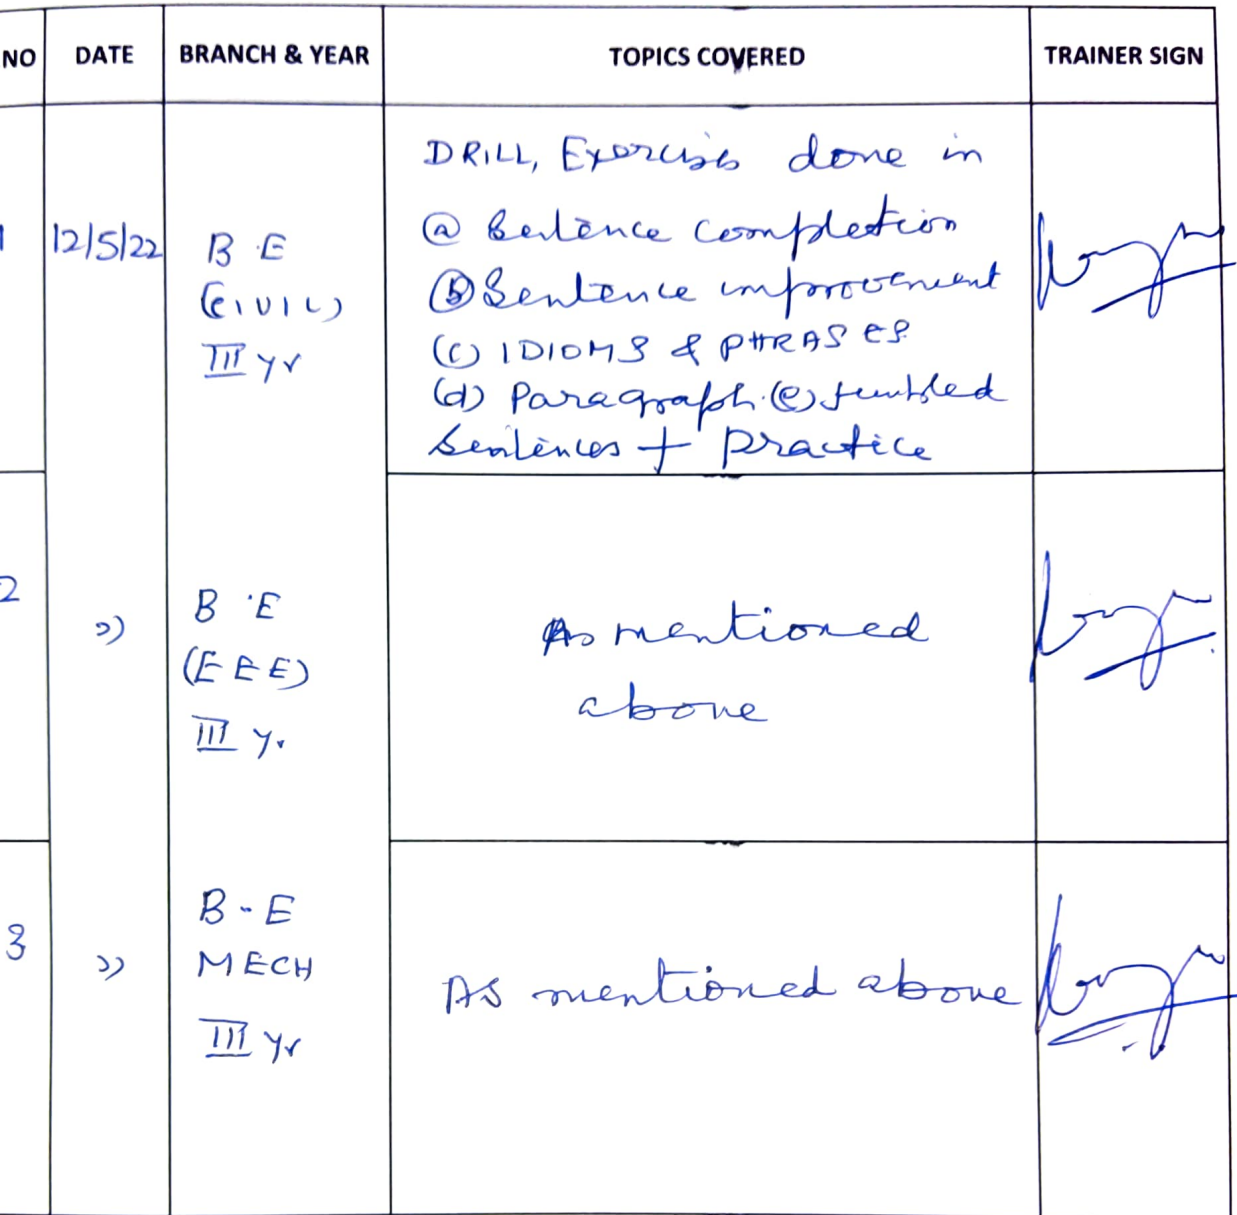 NO DATE BRANCH & YEAR TOPICS COVERED TRAINER SIGN
1 12/5/22 B.E (CIVIL) III yr
DRILL, Exercises done in
(a) Sentence completion
(b) Sentence improvement
(c) IDIOMS & PHRASES
(d) Paragraph (e) Jumbled
Sentences + practice
2 ")
B.E
(EEE)
III Yr
As mentioned
above
3 ")
B-E
MECH
III Yr
As mentioned above